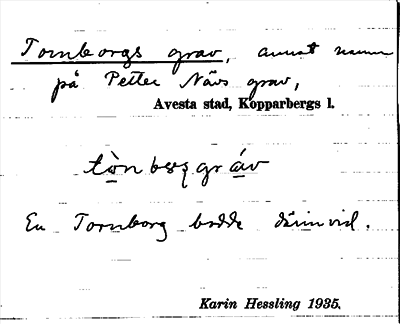 Tornborgs grav, annat namn
på Petter Nävs grav,
Avesta stad, Kopparbergs l.
En Tornborg bodde därinvid.
Karin Hessling 1935.